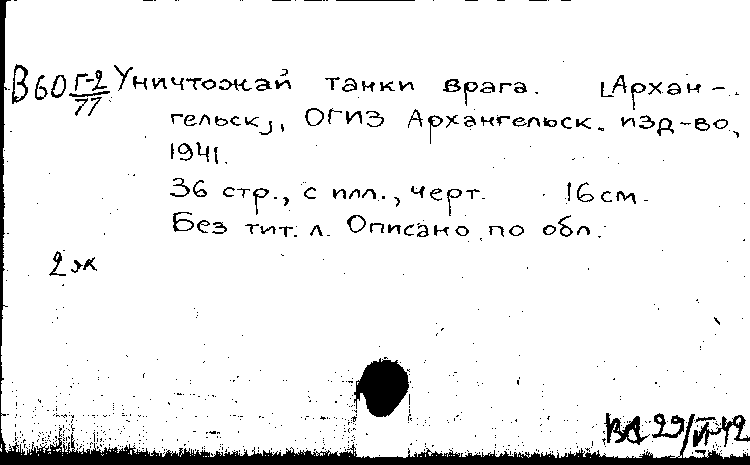 В60 Г-2/77 Уничтожай танки врага. [Архан-
гельск], ОГИЗ Архангельск. изд-во,
1941.
36 стр., с илл., черт. 16 см.
Без тит. л. Описано по обл.
2 эк
29/VI-42